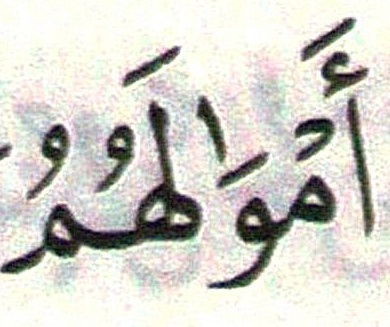 أَمْوَٰلَهُمُ